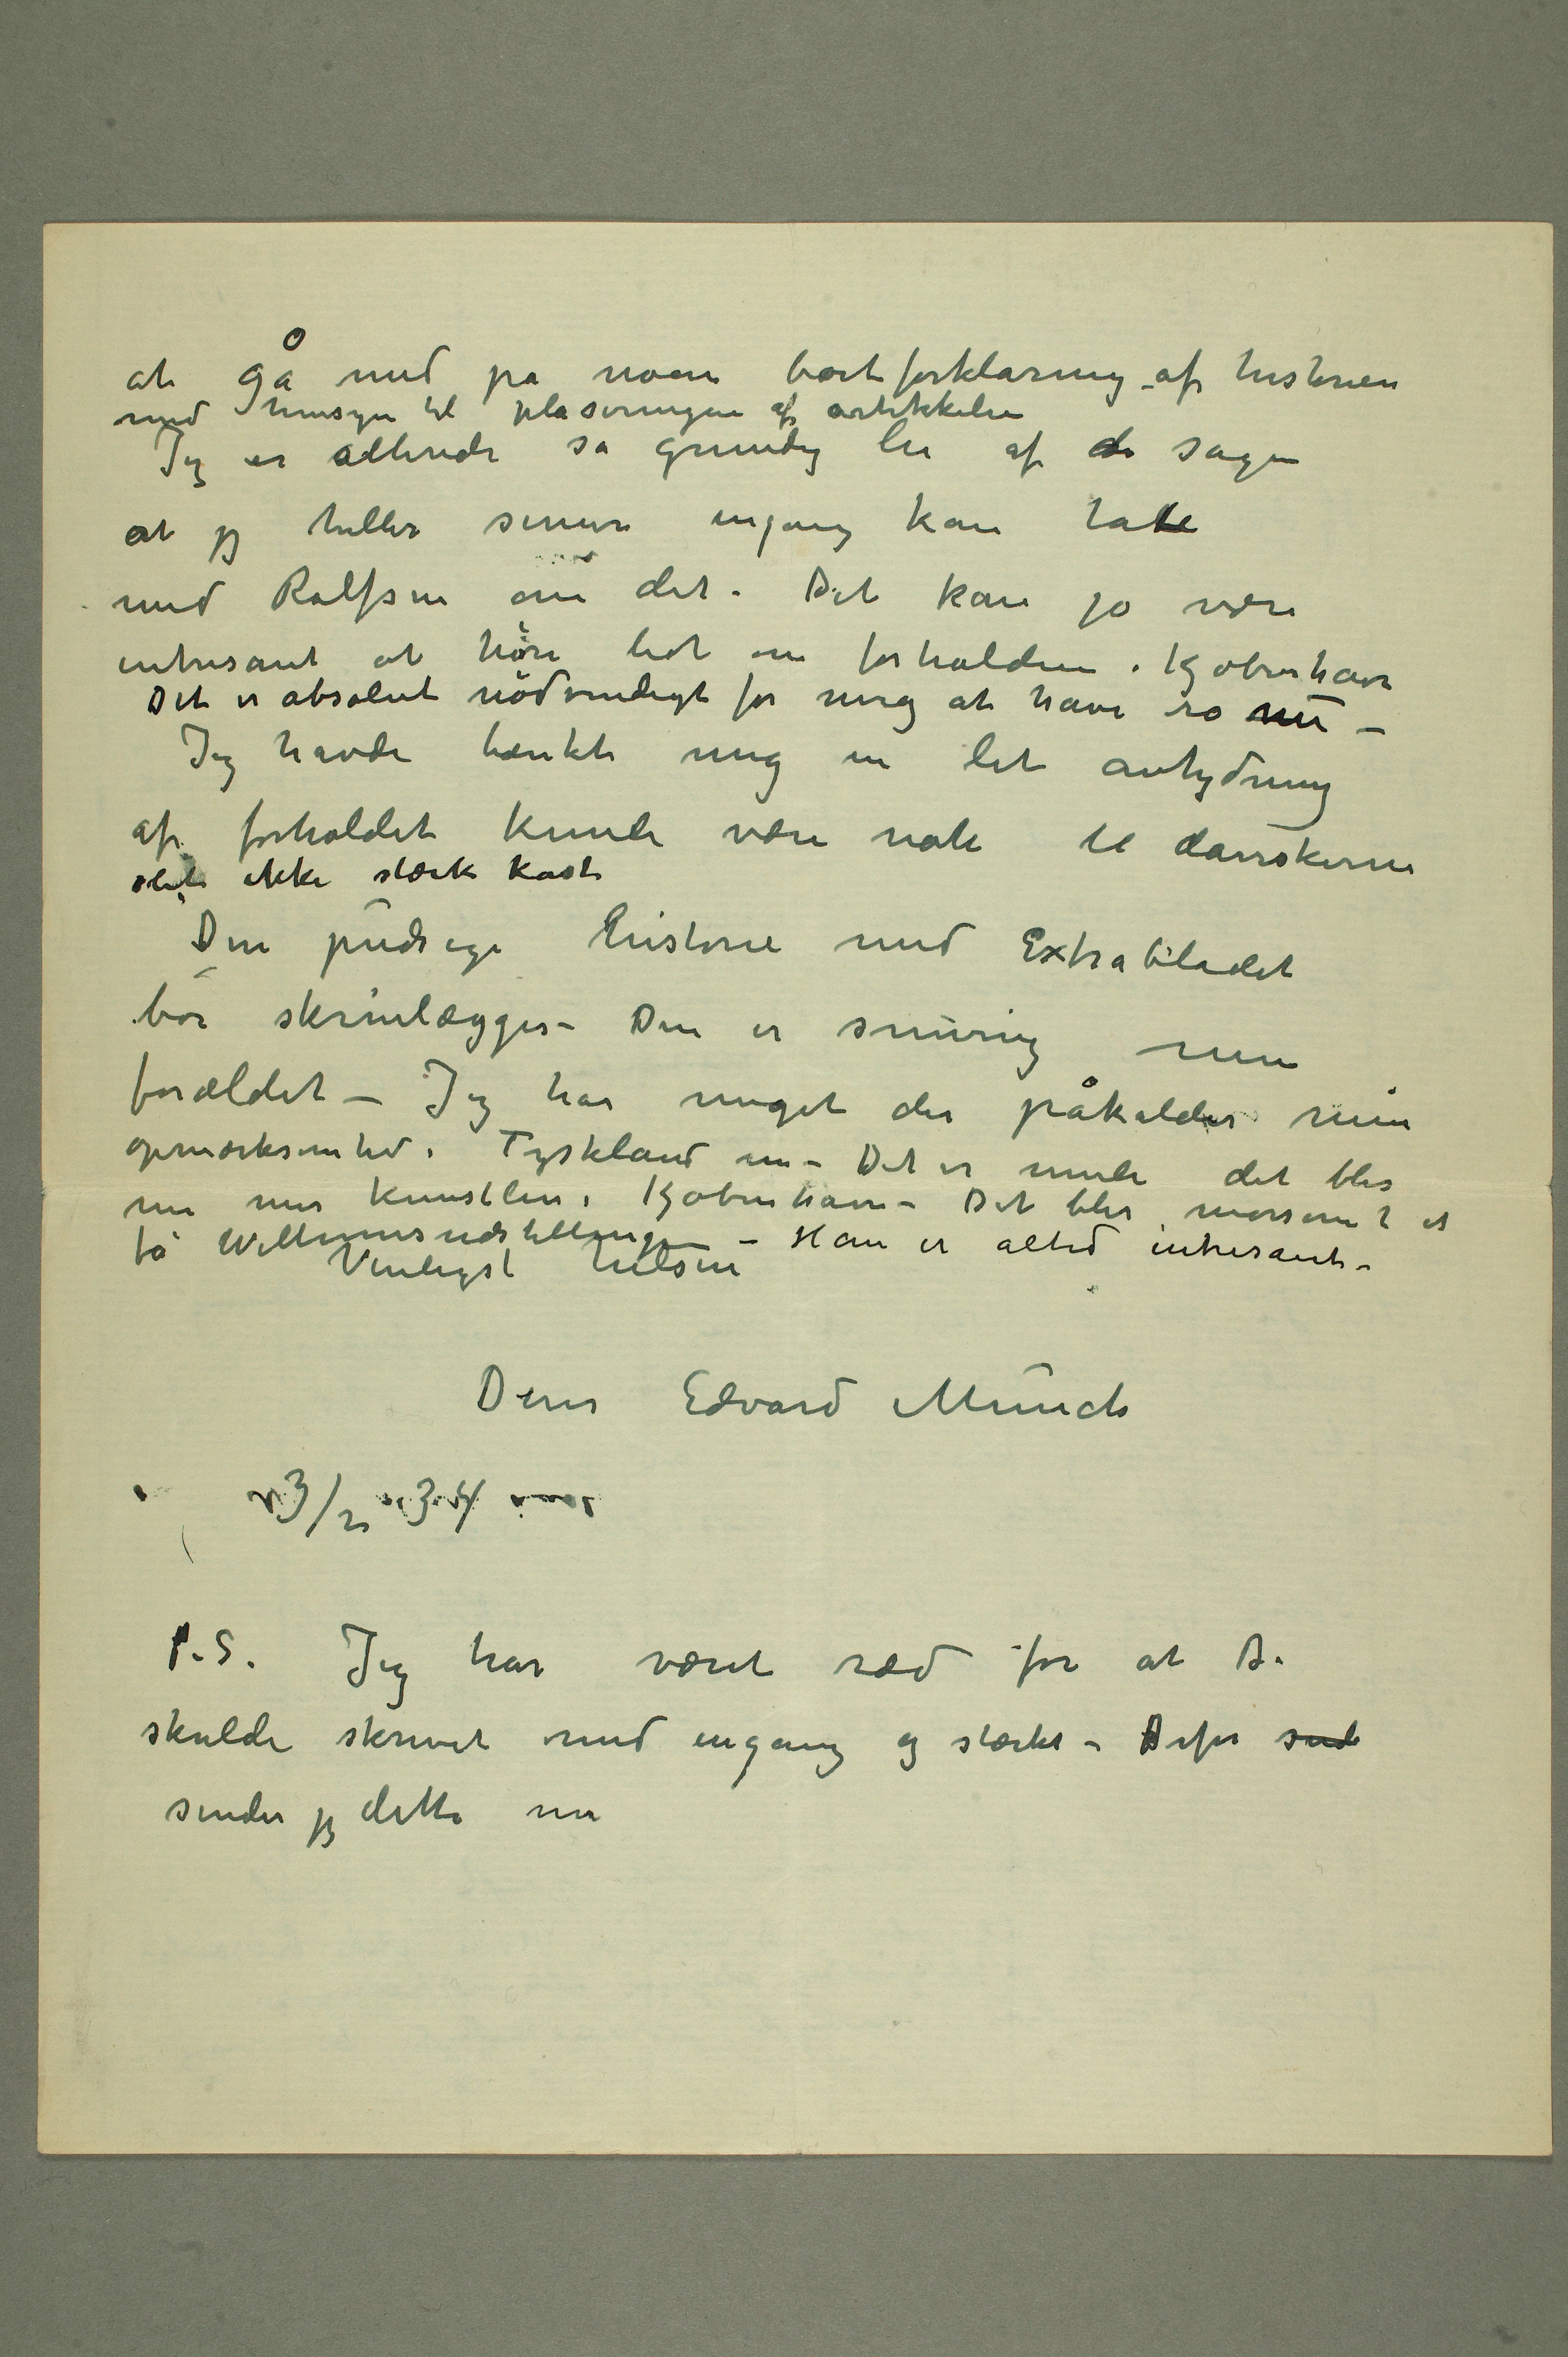 at gå med på noen bortforklaring af historien
med hensyn til plaseringen af artikkelen
Jeg er allerede så grundig lei af de sagen
at jeg heller senere engang kan tale
med Rolfsen om det. Det kan jo være
intresant at høre lidt om forholdene i Kjøbenhavn
Det er absolut nødvendigt for meg at have ro nu –
Jeg havde tænkt mig en let antydning
af forholdet kunde være nok til danskerne
slet ikke stærk kost
Den pudsige historie med Extrabladet
bør skrinlægges – Den er snurrig men
forældet – Jeg har meget der påkalder min
opmærksomhed i Tyskland nu – Det er mulig det blir
nu mer kunstliv i Kjøbenhavn – Det blir morsomt at
få Willumsensudstillingen – Han er altid intresant –
Venligst hilsen
Deres Edvard Munch
3/2 34
P.S. Jeg har været ræd for at De
skulde skrevet med engang og stærkt – Derfor send
sender jeg dette nu